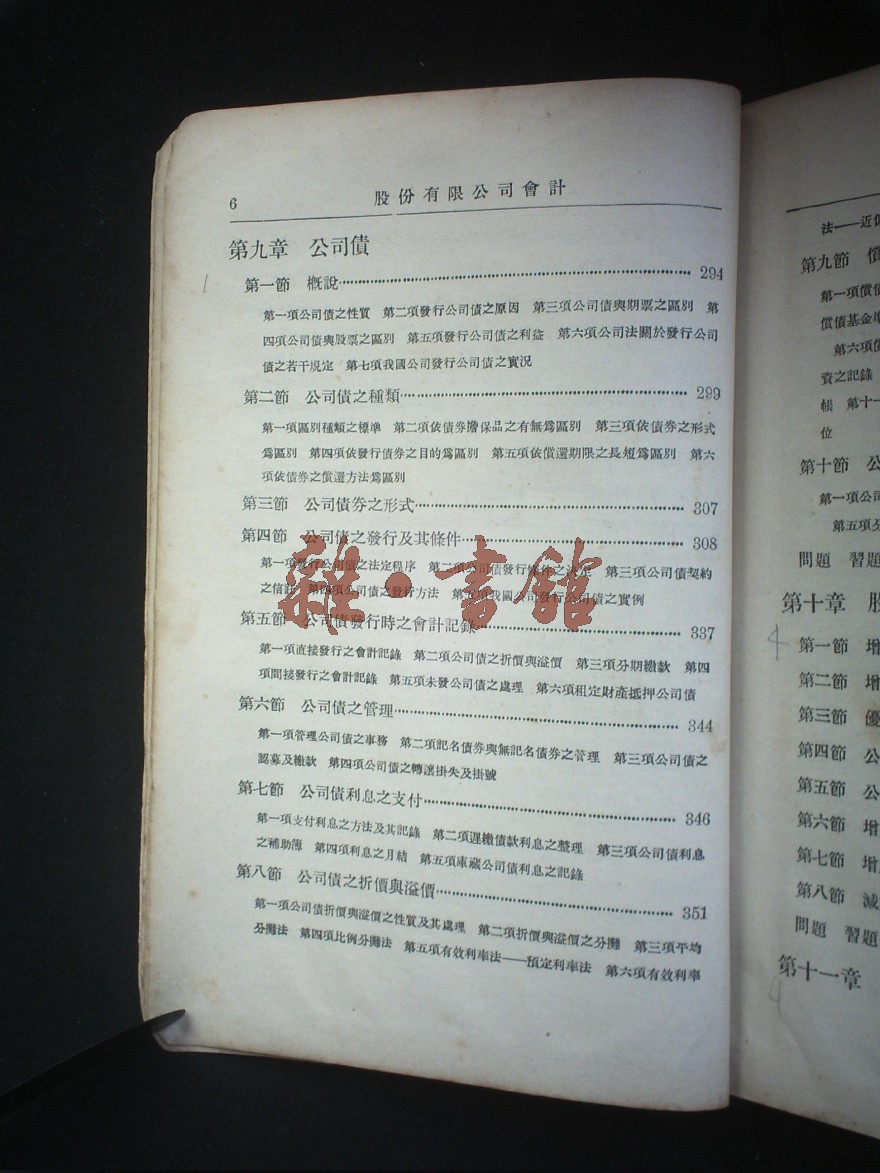 6 股份有限公司會計
第九章 公司債
第一節 概說 294
第一項公司債之性質 第二項發行公司債之原因 第三項公司債與期票之區別 第
四項公司債與股票之區別 第五項發行公司債之利益 第六項公司法關於發行公司
債之若干規定 第七項我國公司發行公司債之實況
第二節 公司債之種類 299
第一項區別種類之標準 第二項依債券擔保品之有無爲區別 第三項依債券之形式
爲區別 第四項依發行債券之目的爲區別 第五項依償還期限之長短爲區別 第六
項依債券之償還方法爲區別
第三節 公司債券之形式 307
第四節 公司債之發行及其條件 308
第一項發行公司債之法定程序 第二項公司債發行條件之決定 第三項公司債契約
之信託 第四項公司債之發行方法 第五項我國公司發行公司債之實例
第五節 公司債發行時之會計記錄 337
第一項直接發行之會計記錄 第二項公司債之折價與溢價 第三項分期繳款 第四
項間接發行之會計記錄 第五項未發公司債之處理 第六項租定財產抵押公司債
第六節 公司債之管理 344
第一項管理公司債之事務 第二項記名債券與無記名債券之管理 第三項公司債之
認募及繳款 第四項公司債之轉讓掛失及掛號
第七節 公司債利息之支付 346
第一項支付利息之方法及其記錄 第二項遲繳債款利息之整理 第三項公司債利息
之補助簿 第四項利息之月結 第五項庫藏公司債利息之記錄
第八節 公司債之折價與溢價 351
第一項公司債折價與溢價之性質及其處理 第二項折價與溢價之分攤 第三項平均
分攤法 第四項比例分攤法 第五項有效利率法——預定利率法 第六項有效利率
雜·書館
法——近
第九節 償
第一項償
償債基金
第六項
資之記錄
帳 第十一
位
第十節 公
第一項公
第五項
問題 習題
第十章 股
第一節 增
第二節 增
第三節 優
第四節 公
第五節 公
第六節 增
第七節 增
第八節 減
問題 習題
第十一章